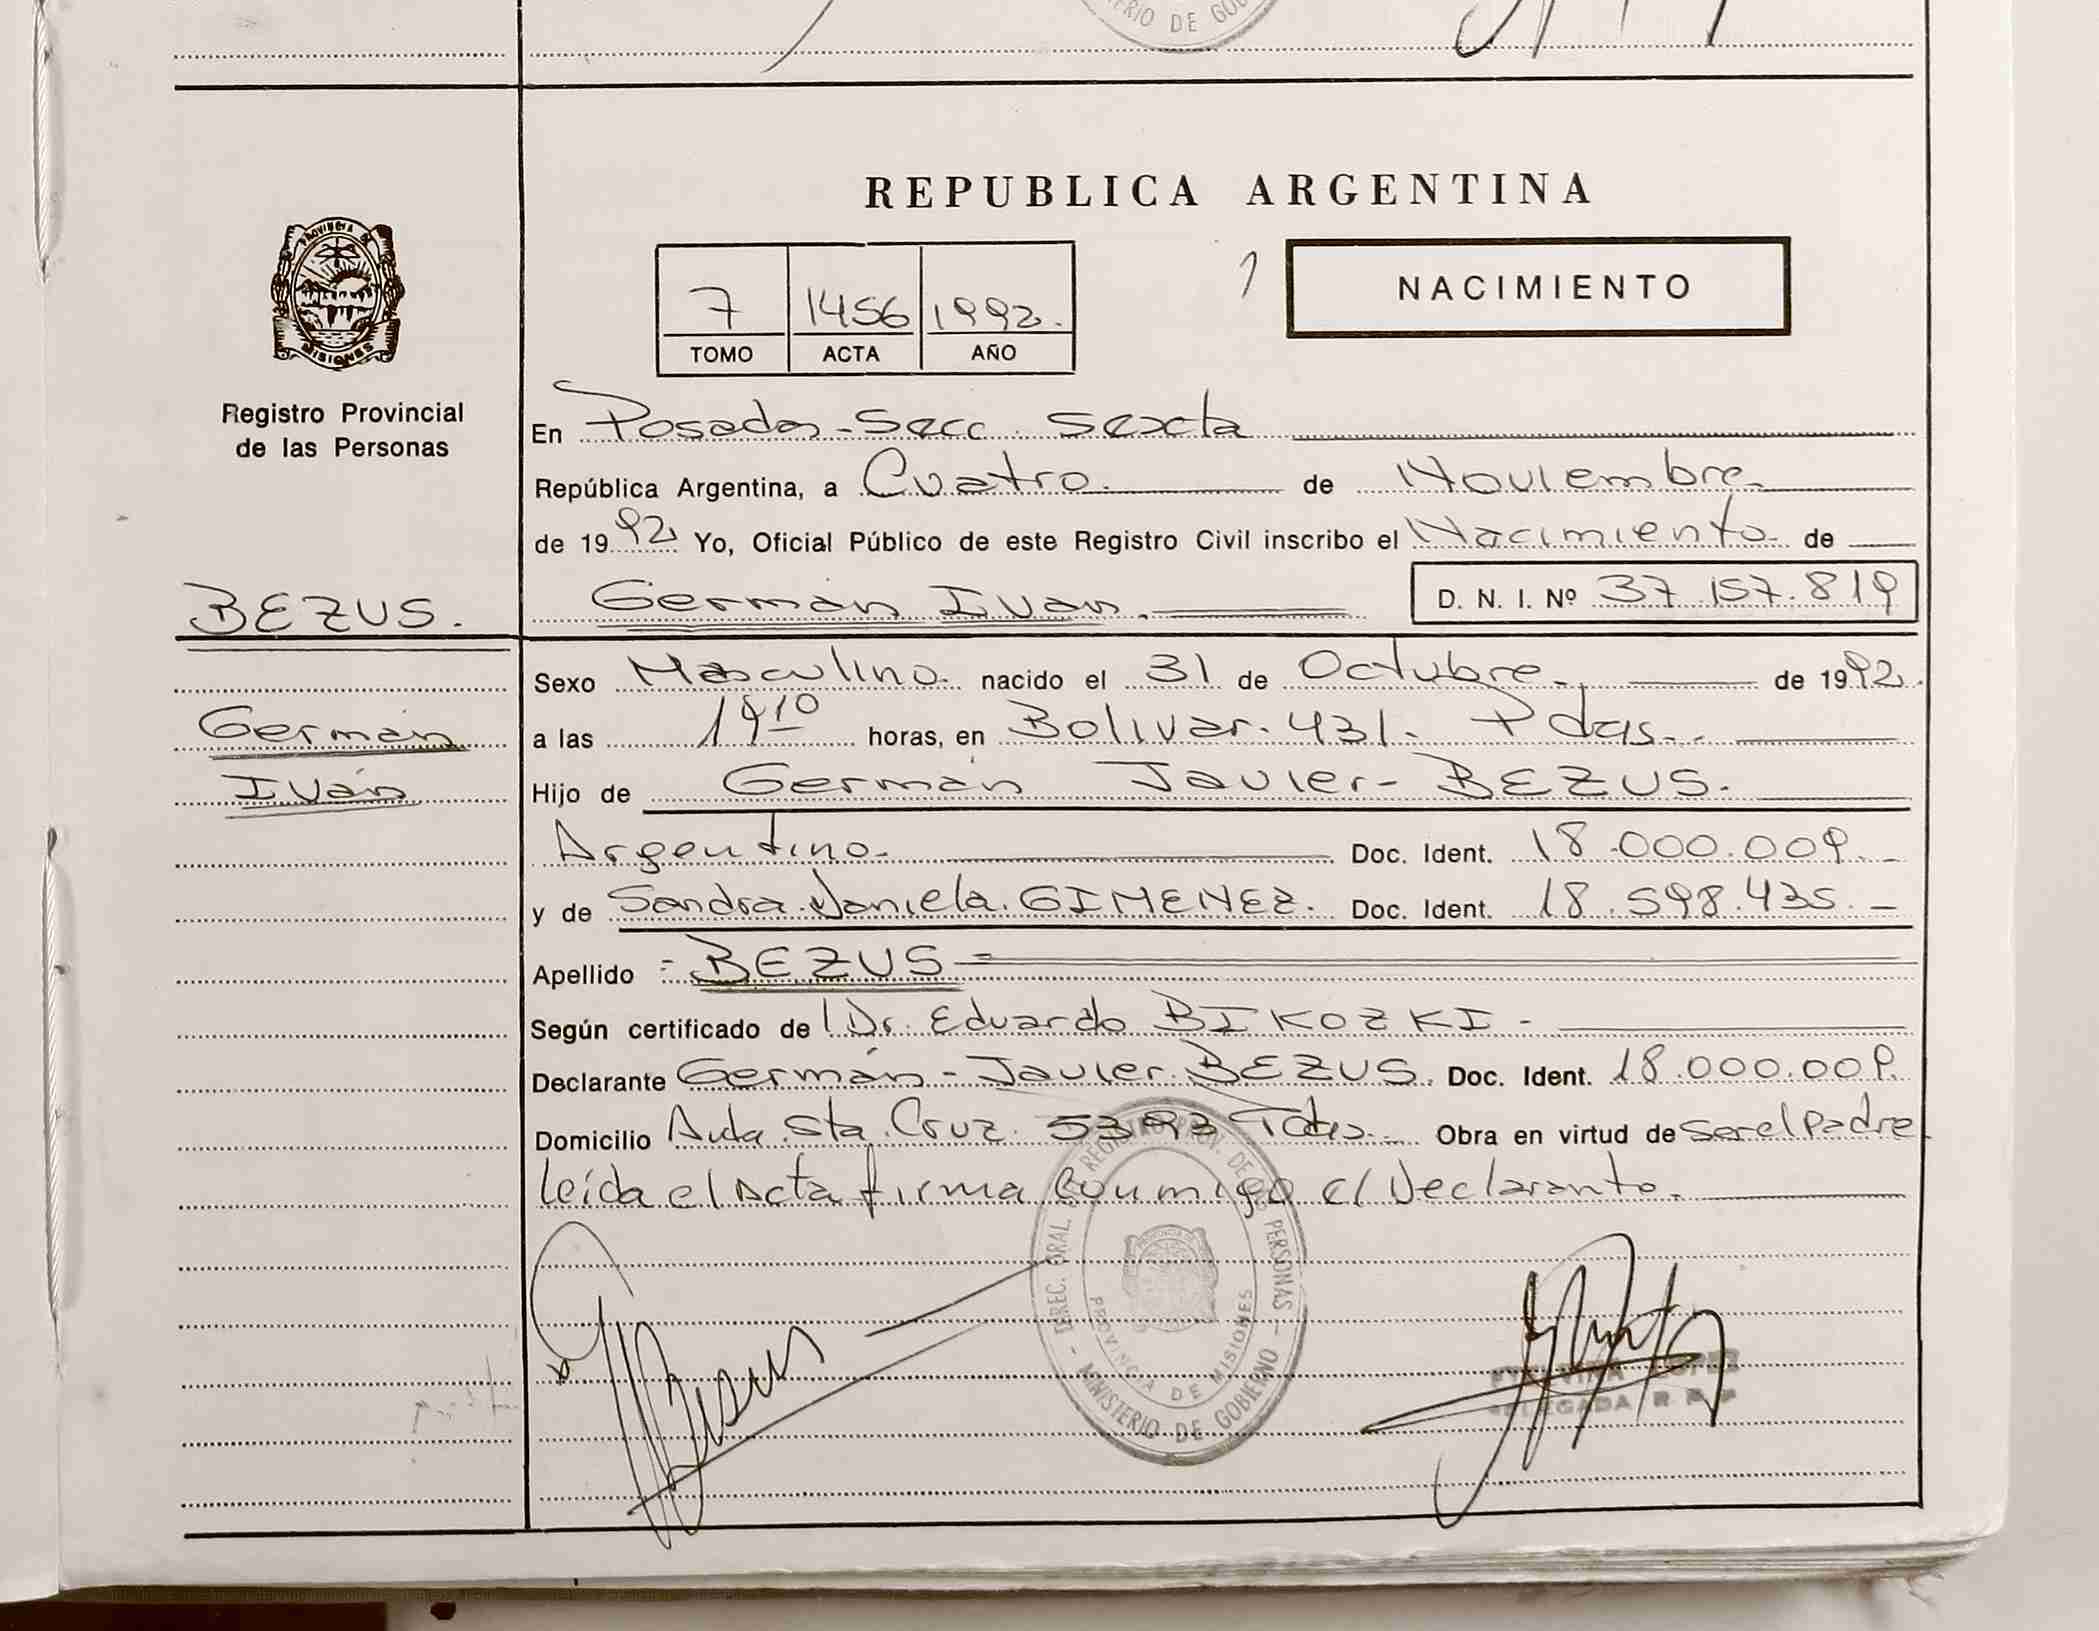 MINISTERIO DE GOBIERNO
REPUBLICA ARGENTINA
PROVINCIA DE
MISIONES
Registro Provincial
de las Personas
7 1456 1992.
TOMO ACTA AÑO
1
NACIMIENTO
En Posadas-Secc. Sexta
República Argentina, a Cuatro. de Noviembre.
de 1992 Yo, Oficial Público de este Registro Civil inscribo el Nacimiento de
BEZUS. Germán Iván. D. N. I. Nº 37.157.819
Sexo Masculino. nacido el 31 de Octubre. de 1992.
Germán a las 19 10 horas, en Bolivar. 431. Pdas.
Iván Hijo de Germán Javier- BEZUS.
Argentino. Doc. Ident. 18.000.009.
y de Sandra Daniela. GIMENEZ. Doc. Ident. 18.598.435.
Apellido = BEZUS =
Según certificado de Dr. Eduardo BIKOZKI -
Declarante Germán - Javier. BEZUS. Doc. Ident. 18.000.009.
Domicilio Avda. Sta. Cruz. 5393 Obra en virtud de ser el padre
leída el Acta firma conmigo el Declarante.
DIREC. GRAL. DE REGISTRO PROV. DE LAS PERSONAS
PROVINCIA DE MISIONES
MINISTERIO DE GOBIERNO
Bezus
LOPEZ
DELEGADA R P P